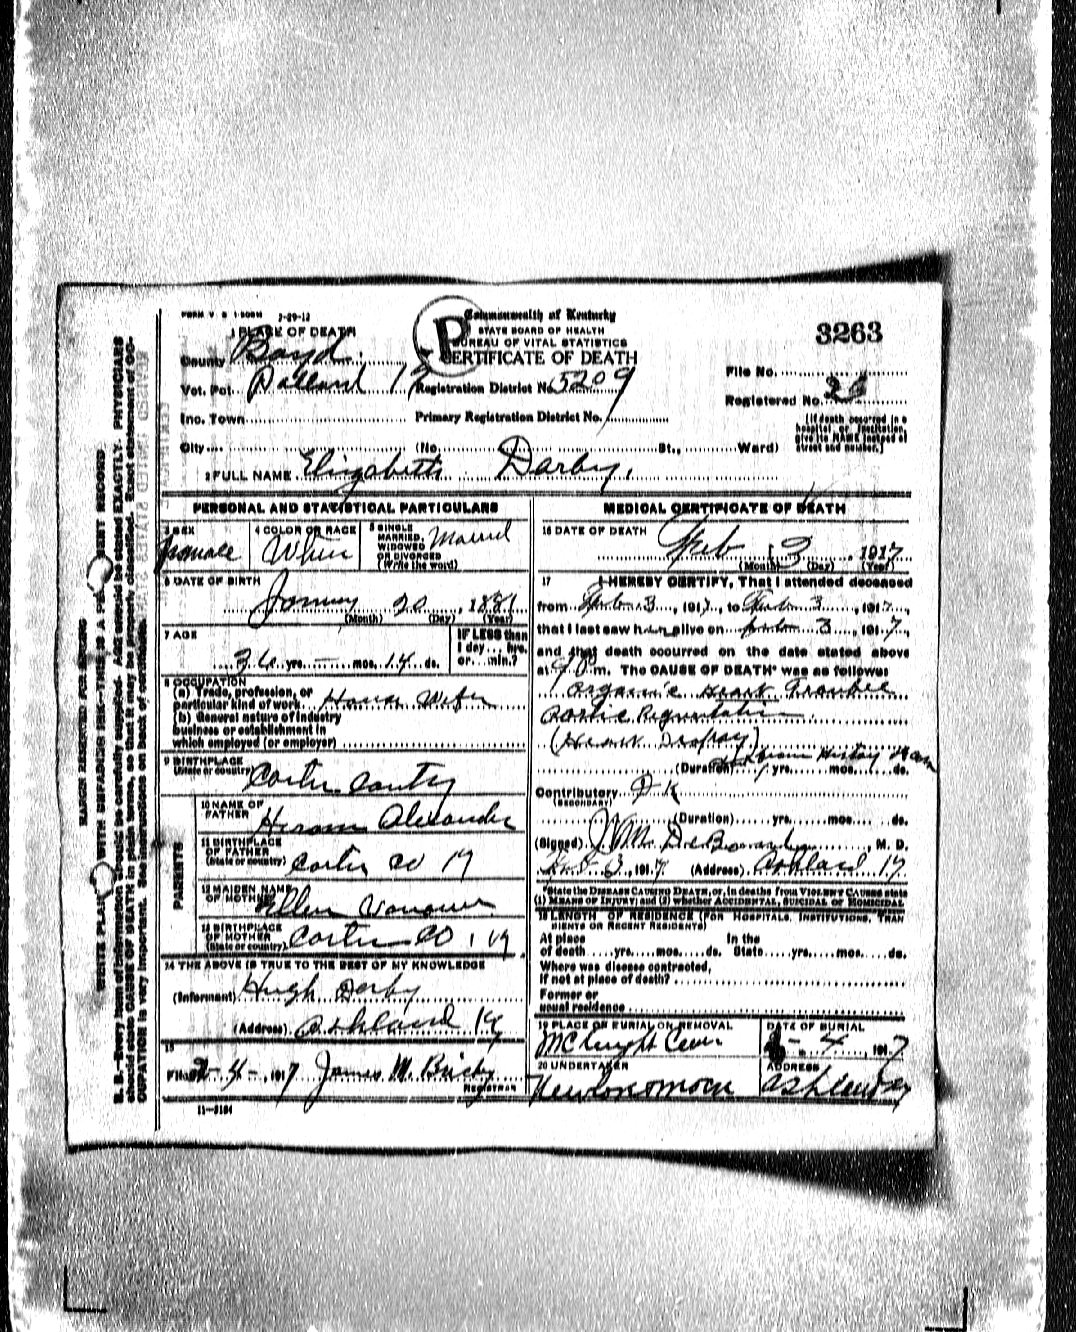 FORM V. S. 1-50M 2-29-12
Commonwealth of Kentucky
STATE BOARD OF HEALTH
BUREAU OF VITAL STATISTICS
CERTIFICATE OF DEATH
3263
1 PLACE OF DEATH
County Boyd
Vot. Pct. 12 Registration District No. 5209
File No.
Registered No.
Inc. Town Primary Registration District No.
[If death occurred in a hospital, or institution, give its NAME instead of street and number.]
City (No. St., Ward)
2 FULL NAME Elizabeth Darby,
PERSONAL AND STATISTICAL PARTICULARS
3 SEX Female
4 COLOR OR RACE White
5 SINGLE MARRIED, WIDOWED OR DIVORCED (Write the word) Married
6 DATE OF BIRTH
January 20, 1881
(Month) (Day) (Year)
7 AGE
36 yrs. — mos. 14 ds.
IF LESS than 1 day... hrs. or... min.?
8 OCCUPATION
(a) Trade, profession, or particular kind of work House Wife
(b) General nature of industry
business or establishment in
which employed (or employer)
9 BIRTHPLACE
(State or country) Carter County
PARENTS
10 NAME OF FATHER Hiram Alexander
11 BIRTHPLACE OF FATHER (State or country) Carter Co Ky
12 MAIDEN NAME OF MOTHER Ellen
13 BIRTHPLACE OF MOTHER (State or country) Carter Co, Ky
14 THE ABOVE IS TRUE TO THE BEST OF MY KNOWLEDGE
(Informant) Hugh Derby
(Address) Ashland Ky
15
Filed 2-4-, 1917 James M.
REGISTRAR
11-3184
MEDICAL CERTIFICATE OF DEATH
16 DATE OF DEATH
Feb 3, 1917
(Month) (Day) (Year)
17 I HEREBY CERTIFY, That I attended deceased
from Feb. 3, 1917, to Feb 3, 1917,
that I last saw her alive on Feb 3, 1917,
and that death occurred on the date stated above
at 9 P.m. The CAUSE OF DEATH* was as follows:
Organic Heart Trouble
Aortic Regurgitation
(Heart Dropsy)
(Duration) yrs. mos. ds.
Contributory D K
(SECONDARY)
(Duration) yrs. mos. ds.
(Signed) M. D.
Feb 3, 1917 (Address) Ashland Ky
*State the DISEASE CAUSING DEATH, or, in deaths from VIOLENT CAUSES state
(1) MEANS OF INJURY; and (2) whether ACCIDENTAL, SUICIDAL OR HOMICIDAL.
18 LENGTH OF RESIDENCE (FOR HOSPITALS, INSTITUTIONS, TRANSIENTS OR RECENT RESIDENTS)
At place of death yrs. mos. ds. In the State yrs. mos. ds.
Where was disease contracted,
if not at place of death?
Former or
usual residence
19 PLACE OF BURIAL OR REMOVAL
DATE OF BURIAL
2-4, 1917
20 UNDERTAKER
ADDRESS
Ashland Ky
MARGIN RESERVED FOR BINDING
WRITE PLAINLY WITH UNFADING INK—THIS IS A PERMANENT RECORD
N. B.—Every item of information should be carefully supplied. AGE should be stated EXACTLY. PHYSICIANS
should state CAUSE OF DEATH in plain terms, so that it may be properly classified. Exact statement of OC-
CUPATION is very important. See instructions on back of certificate.